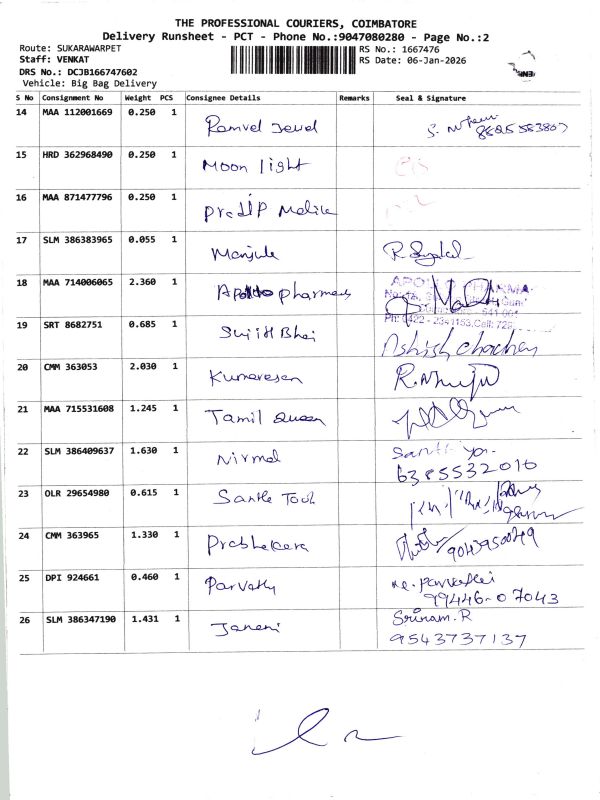 THE PROFESSIONAL COURIERS, COIMBATORE
Delivery Runsheet - PCT - Phone No.:9047080280 - Page No.:2
Route: SUKARAWARPET RS No.: 1667476
Staff: VENKAT RS Date: 06-Jan-2026
DRS No.: DCJB166747602
Vehicle: Big Bag Delivery
S No Consignment No Weight PCS Consignee Details Remarks Seal & Signature
14 MAA 112001669 0.250 1 Ramvel Jewel
15 HRD 362968490 0.250 1 Moon light
16 MAA 871477796 0.250 1 Pradip Malik
17 SLM 386383965 0.055 1 Manjula
18 MAA 714006065 2.360 1 Apollo pharmacy APOLLO PHARMA
19 SRT 8682751 0.685 1 Sujith Bhai Ashish
20 CMM 363053 2.030 1 Kumaresan
21 MAA 715531608 1.245 1 Tamil Queen
22 SLM 386409637 1.630 1 Nirmal Santhiya
6385532010
23 OLR 29654980 0.615 1 Sakthi Tool
24 CMM 363965 1.330 1 Prabhakara
25 DPI 924661 0.460 1 Parvathy
99446-07043
26 SLM 386347190 1.431 1 Janani Sriram.R
9543737137